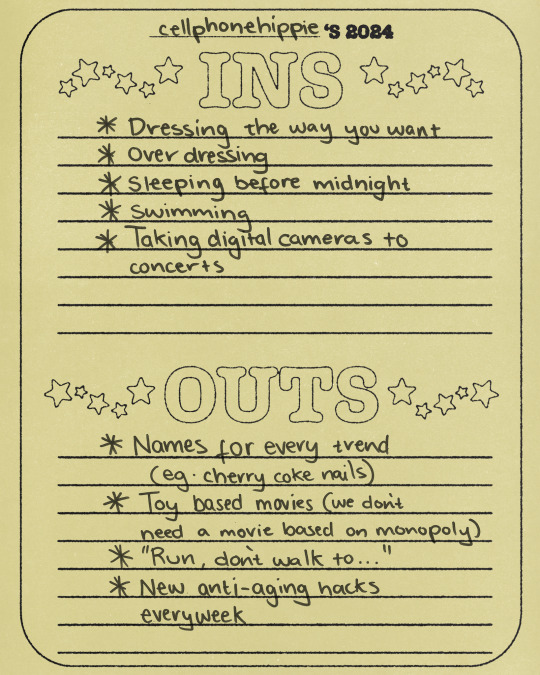 cellphonehippie 'S 2024
INS
* Dressing the way you want
* Over dressing
* Sleeping before midnight
* Swimming
* Taking digital cameras to
concerts
OUTS
* Names for every trend
(eg. cherry coke nails)
* Toy based movies (we don't
need a movie based on monopoly)
* "Run, don't walk to..."
* New anti-aging hacks
everyweek